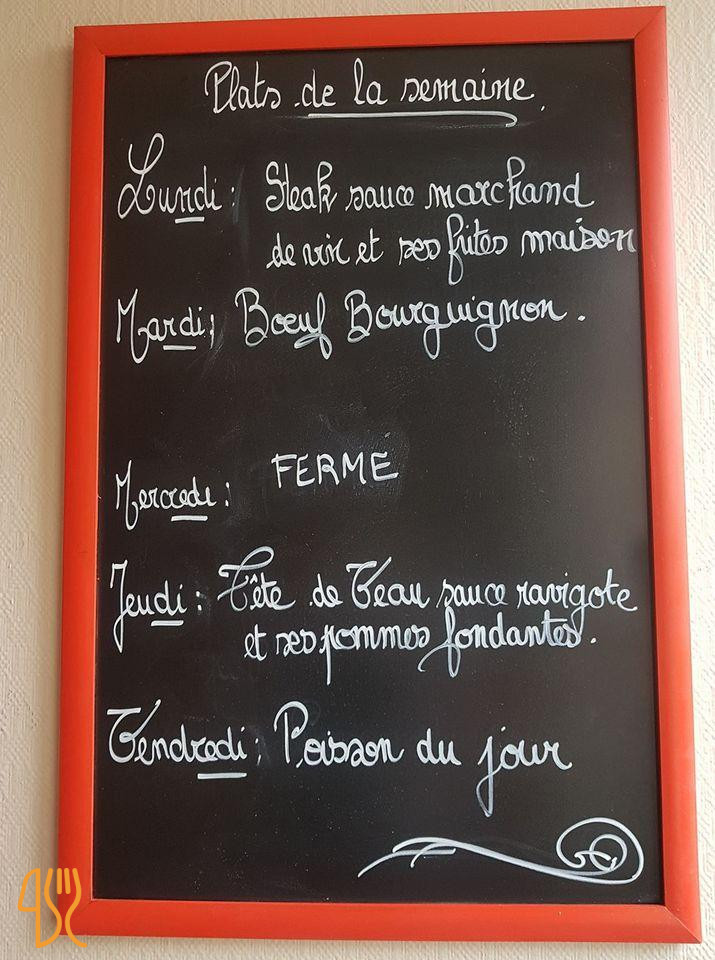 Plats de la semaine.
Lundi : Steak sauce marchand
de vin et ses frites maison
Mardi : Bœuf Bourguignon.
Mercredi : FERME
Jeudi : Tête de Veau sauce ravigote
et ses pommes fondantes.
Vendredi : Poisson du jour